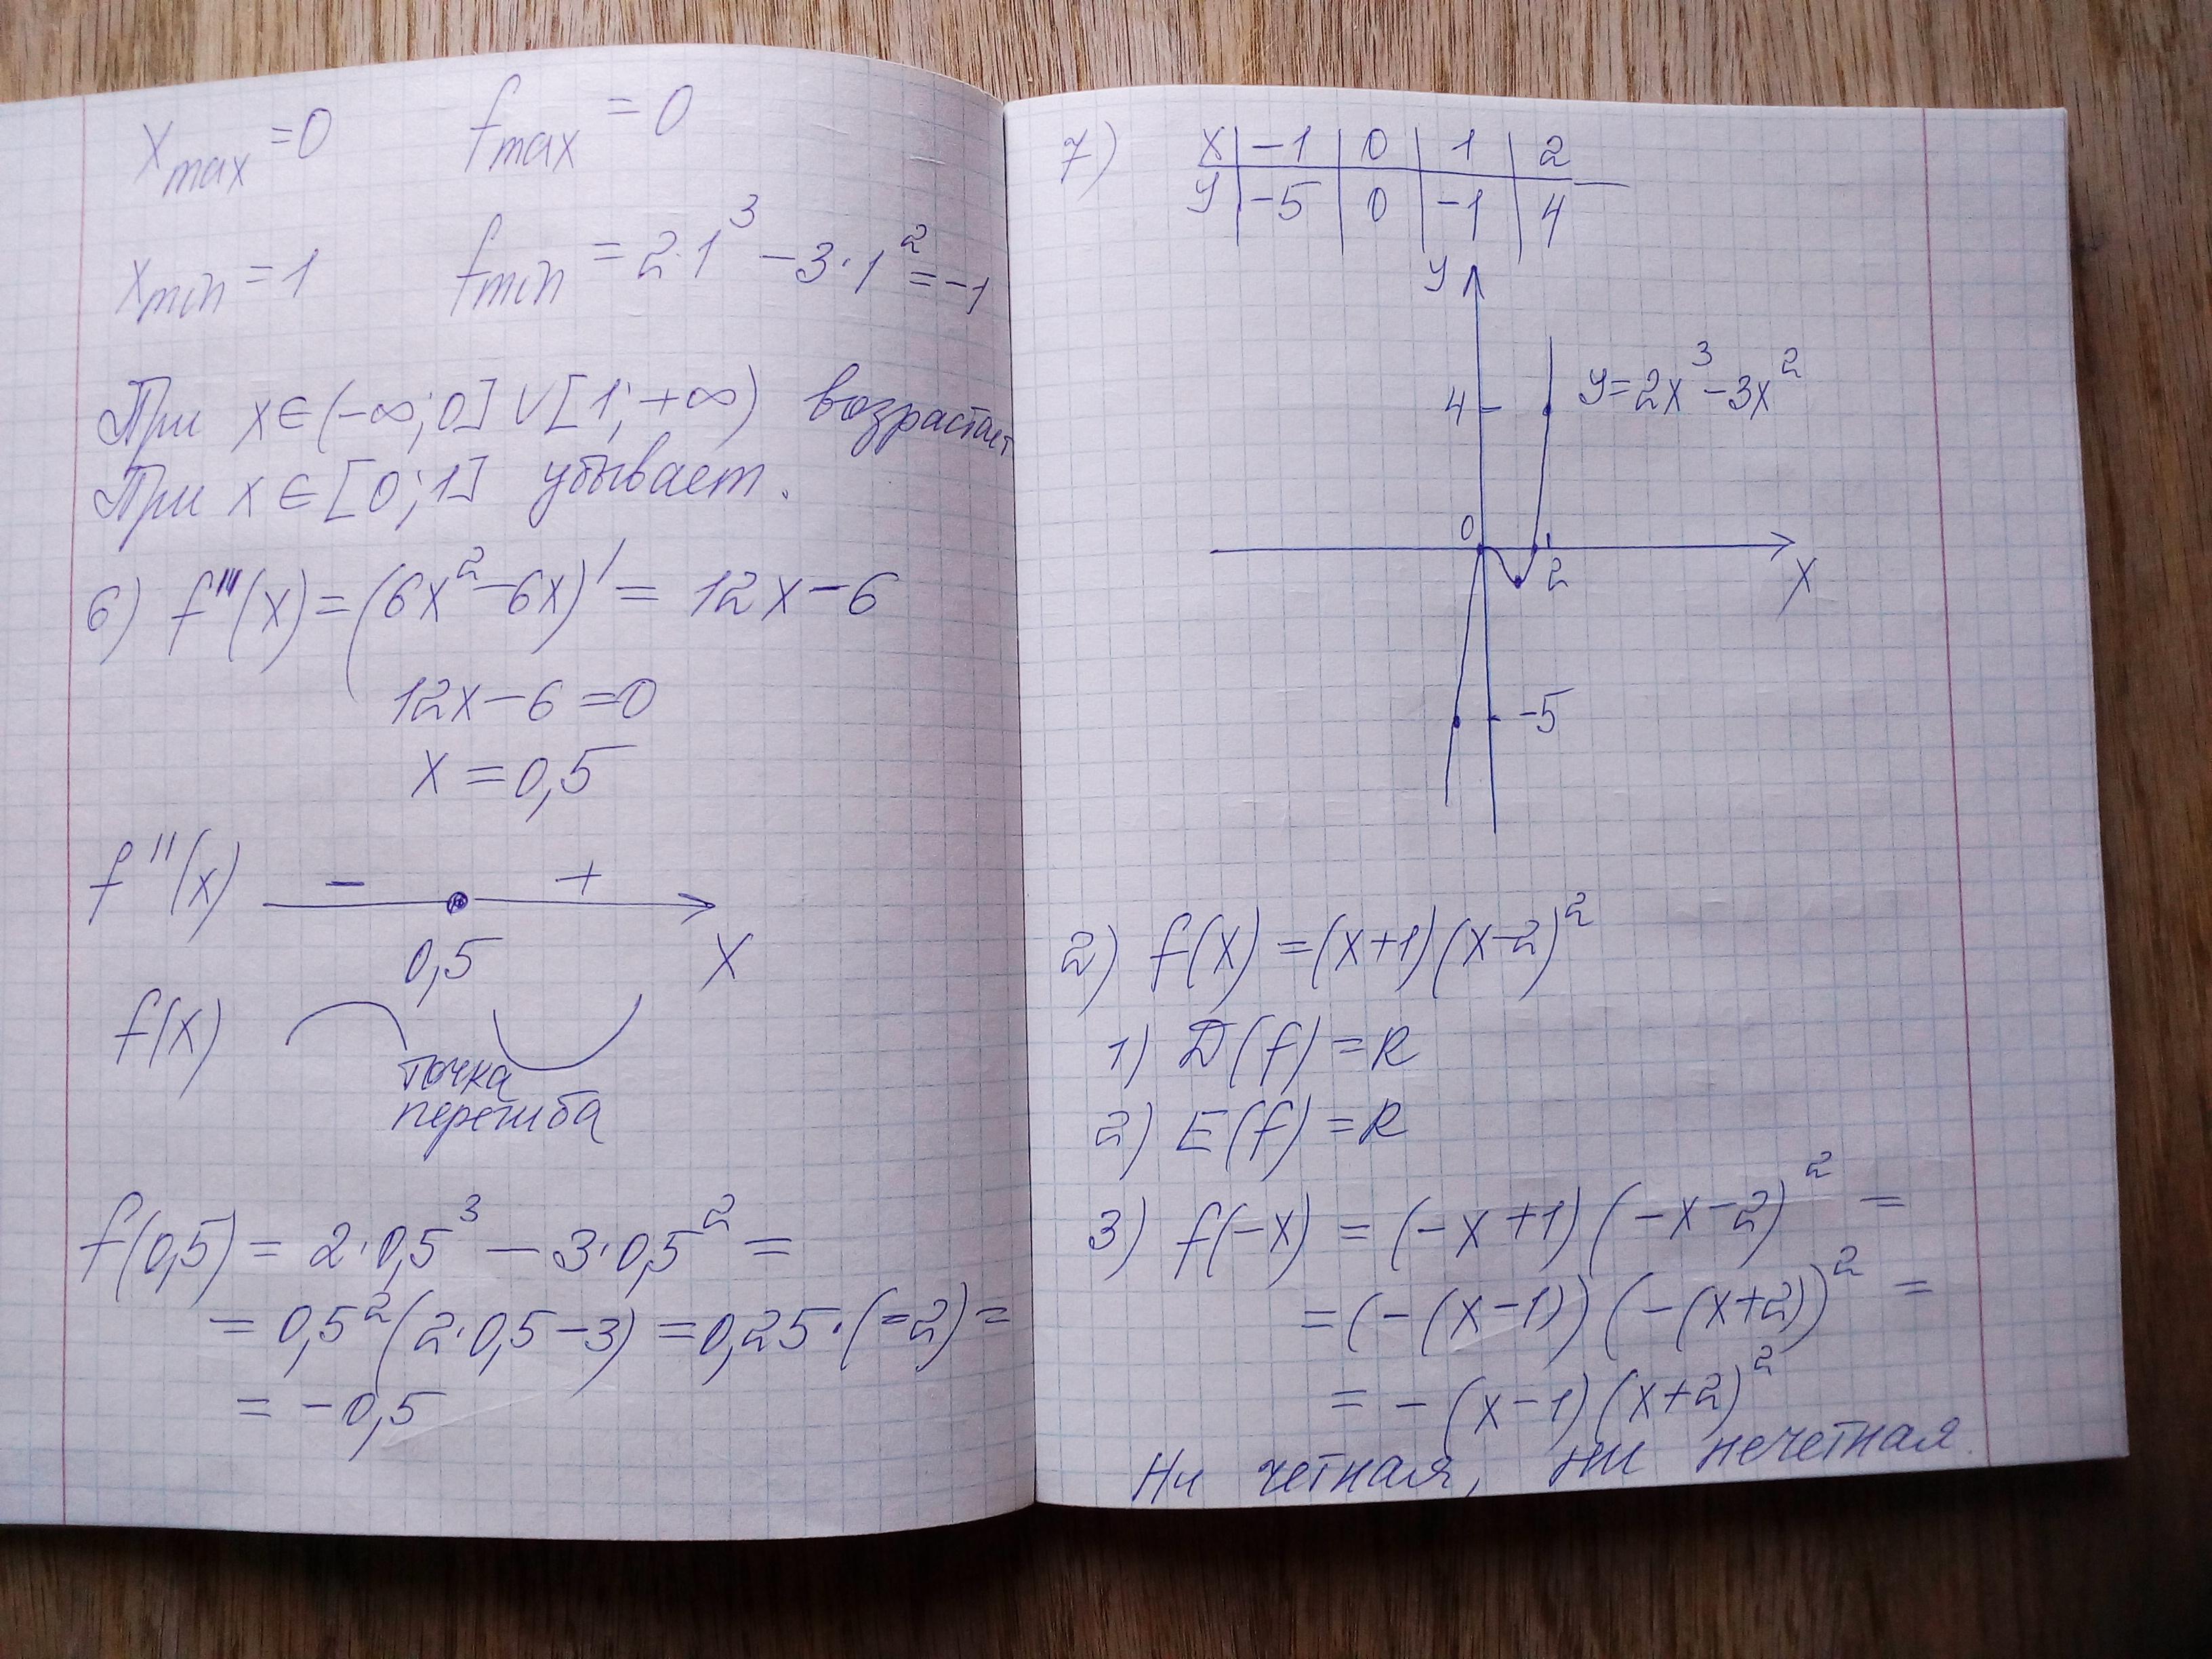 x max = 0 f max = 0
x min = 1 f min = 2·1³ - 3·1² = -1
При x∈(-∞;0]∪[1;+∞) возрастает
При x∈[0;1] убывает.
6) f'''(x) = (6x² - 6x)' = 12x - 6
12x - 6 = 0
x = 0,5
f''(x) - +
0,5 X
f(x)
точка
перегиба
f(0,5) = 2·0,5³ - 3·0,5² =
= 0,5²(2·0,5 - 3) = 0,25·(-2) =
= -0,5
7) X -1 0 1 2
У -5 0 -1 4
У
4 У=2x³-3x²
0 2 X
-5
2) f(x) = (x+1)(x-2)²
1) D(f) = R
2) E(f) = R
3) f(-x) = (-x+1)(-x-2)² =
= (-(x-1))(-(x+2))² =
= -(x-1)(x+2)²
Ни четная, ни нечетная.